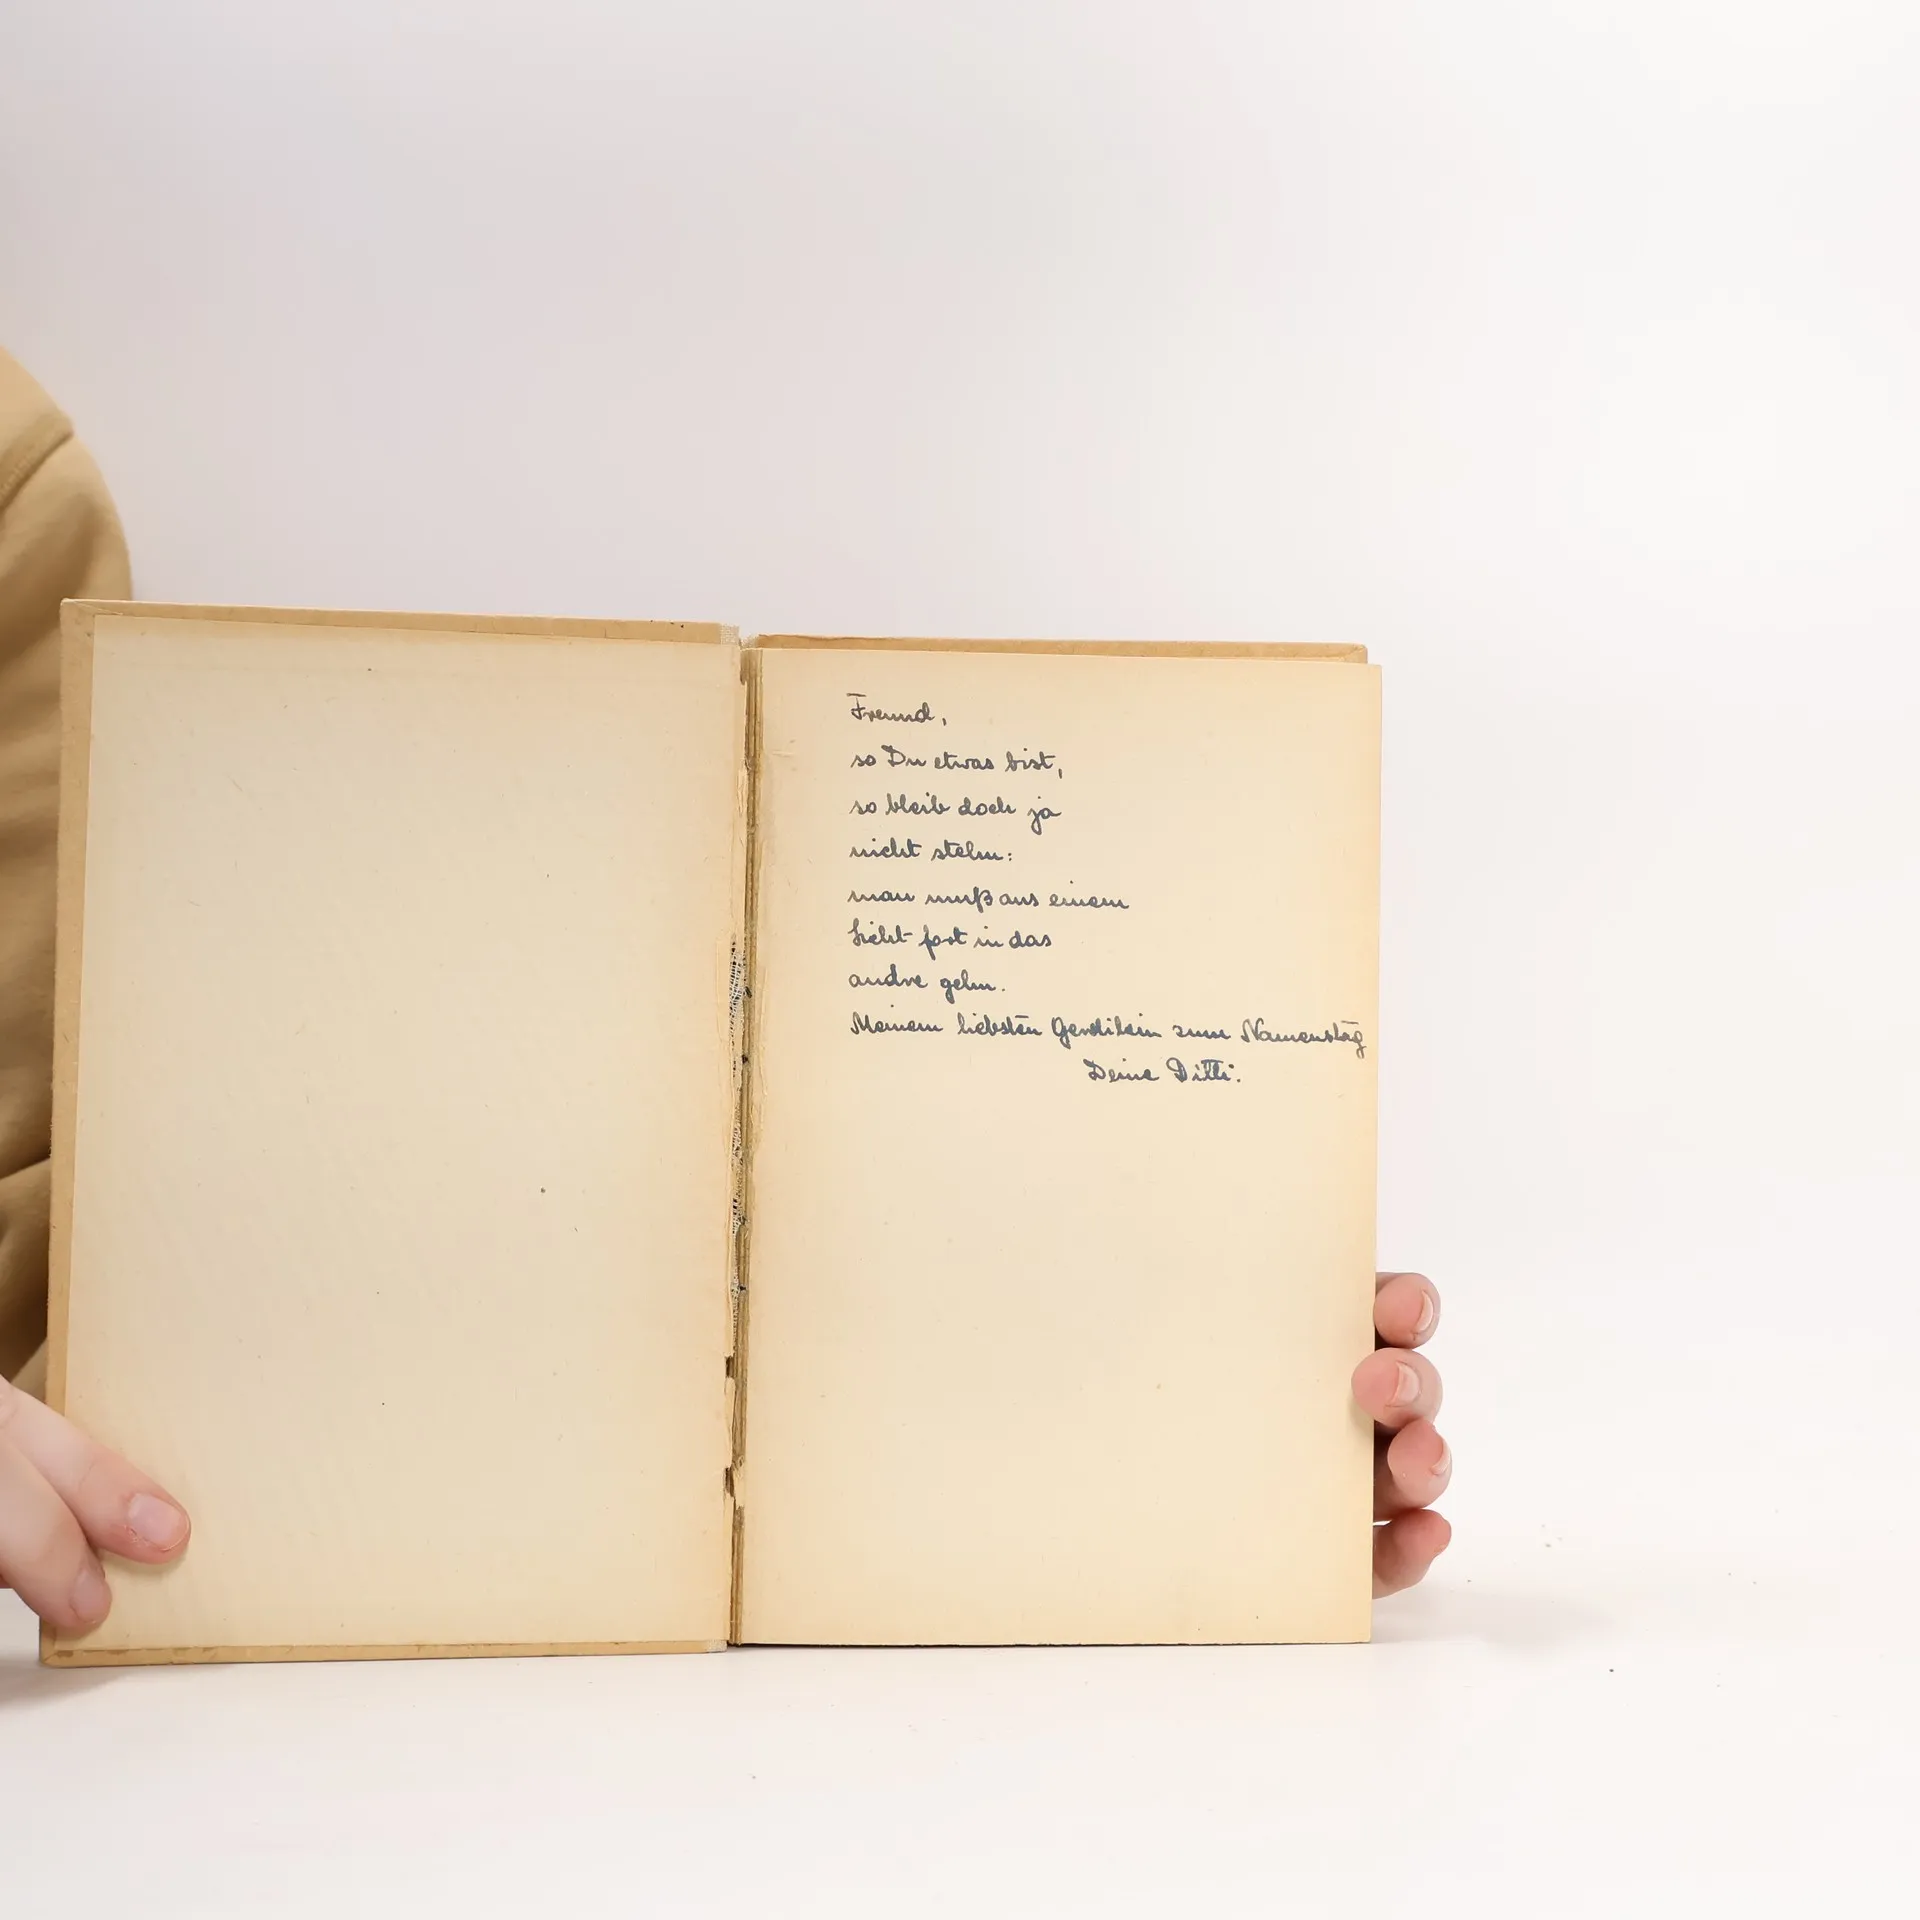 Freund,
so Du etwas bist,
so bleib doch ja
nicht stehn:
man muß aus einem
Licht fort in das
andre gehn.
Meinem liebsten zum Namenstag
Deine Ditti.